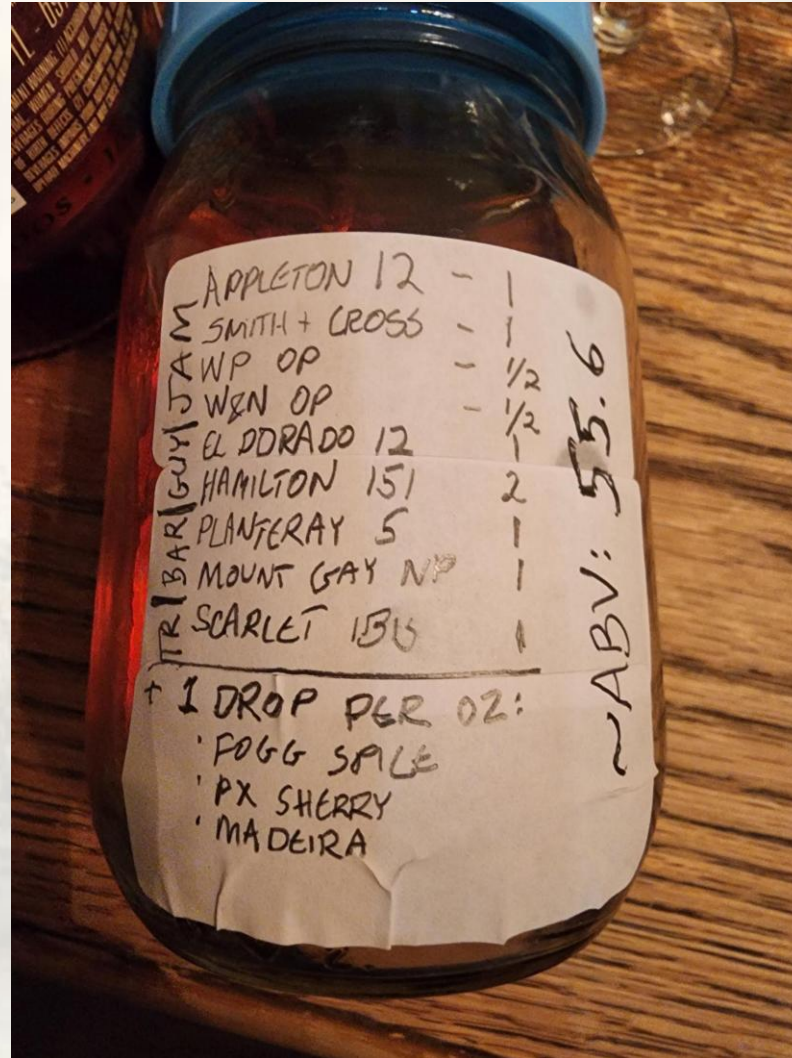 APPLETON 12 - 1
SMITH + CROSS - 1
WP OP - 1/2
W&N OP - 1/2
EL DORADO 12 1
HAMILTON 151 2
PLANTERAY 5 1
MOUNT GAY NP 1
SCARLET IBIS 1
TR|BAR|GUY|JAM
+ 1 DROP PER OZ:
· FOGG SPICE
· PX SHERRY
· MADEIRA
~ABV: 55.6